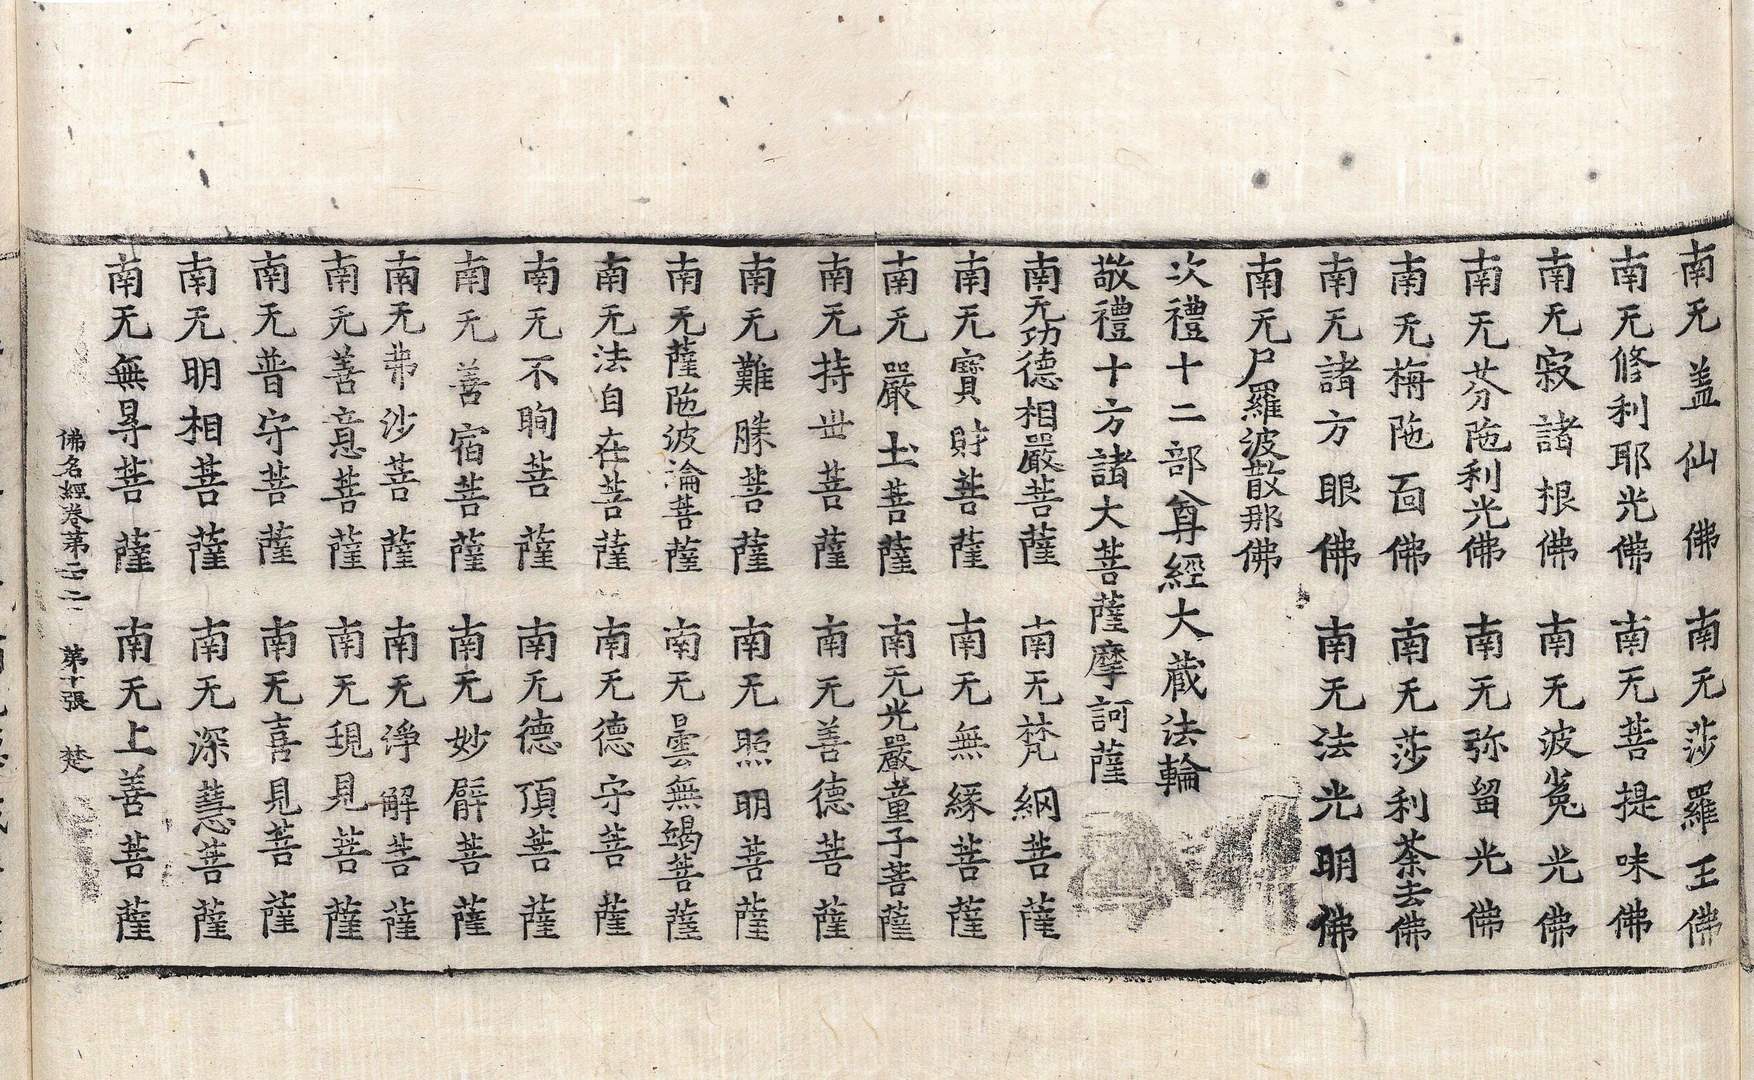 南无盖仙佛 南无莎羅王佛
南无修利耶光佛 南无菩提味佛
南无寂諸根佛 南无波㝹光佛
南无芬陁利光佛 南无弥留光佛
南无栴陁面佛 南无莎利荼去佛
南无諸方眼佛 南无法光明佛
南无尸羅波散那佛
次禮十二部尊經大藏法輪
敬禮十方諸大菩薩摩訶薩
南无功德相嚴菩薩 南无梵網菩薩
南无寳財菩薩 南无無緣菩薩
南无嚴土菩薩 南无光嚴童子菩薩
南无持世菩薩 南无善德菩薩
南无難勝菩薩 南无照明菩薩
南无薩陁波淪菩薩 南无曇無竭菩薩
南无法自在菩薩 南无德守菩薩
南无不眴菩薩 南无德頂菩薩
南无善宿菩薩 南无妙臂菩薩
南无弗沙菩薩 南无淨解菩薩
南无善意菩薩 南无現見菩薩
南无普守菩薩 南无喜見菩薩
南无明相菩薩 南无深慧菩薩
南无無㝵菩薩 南无上善菩薩
佛名經卷第二 第十張 楚